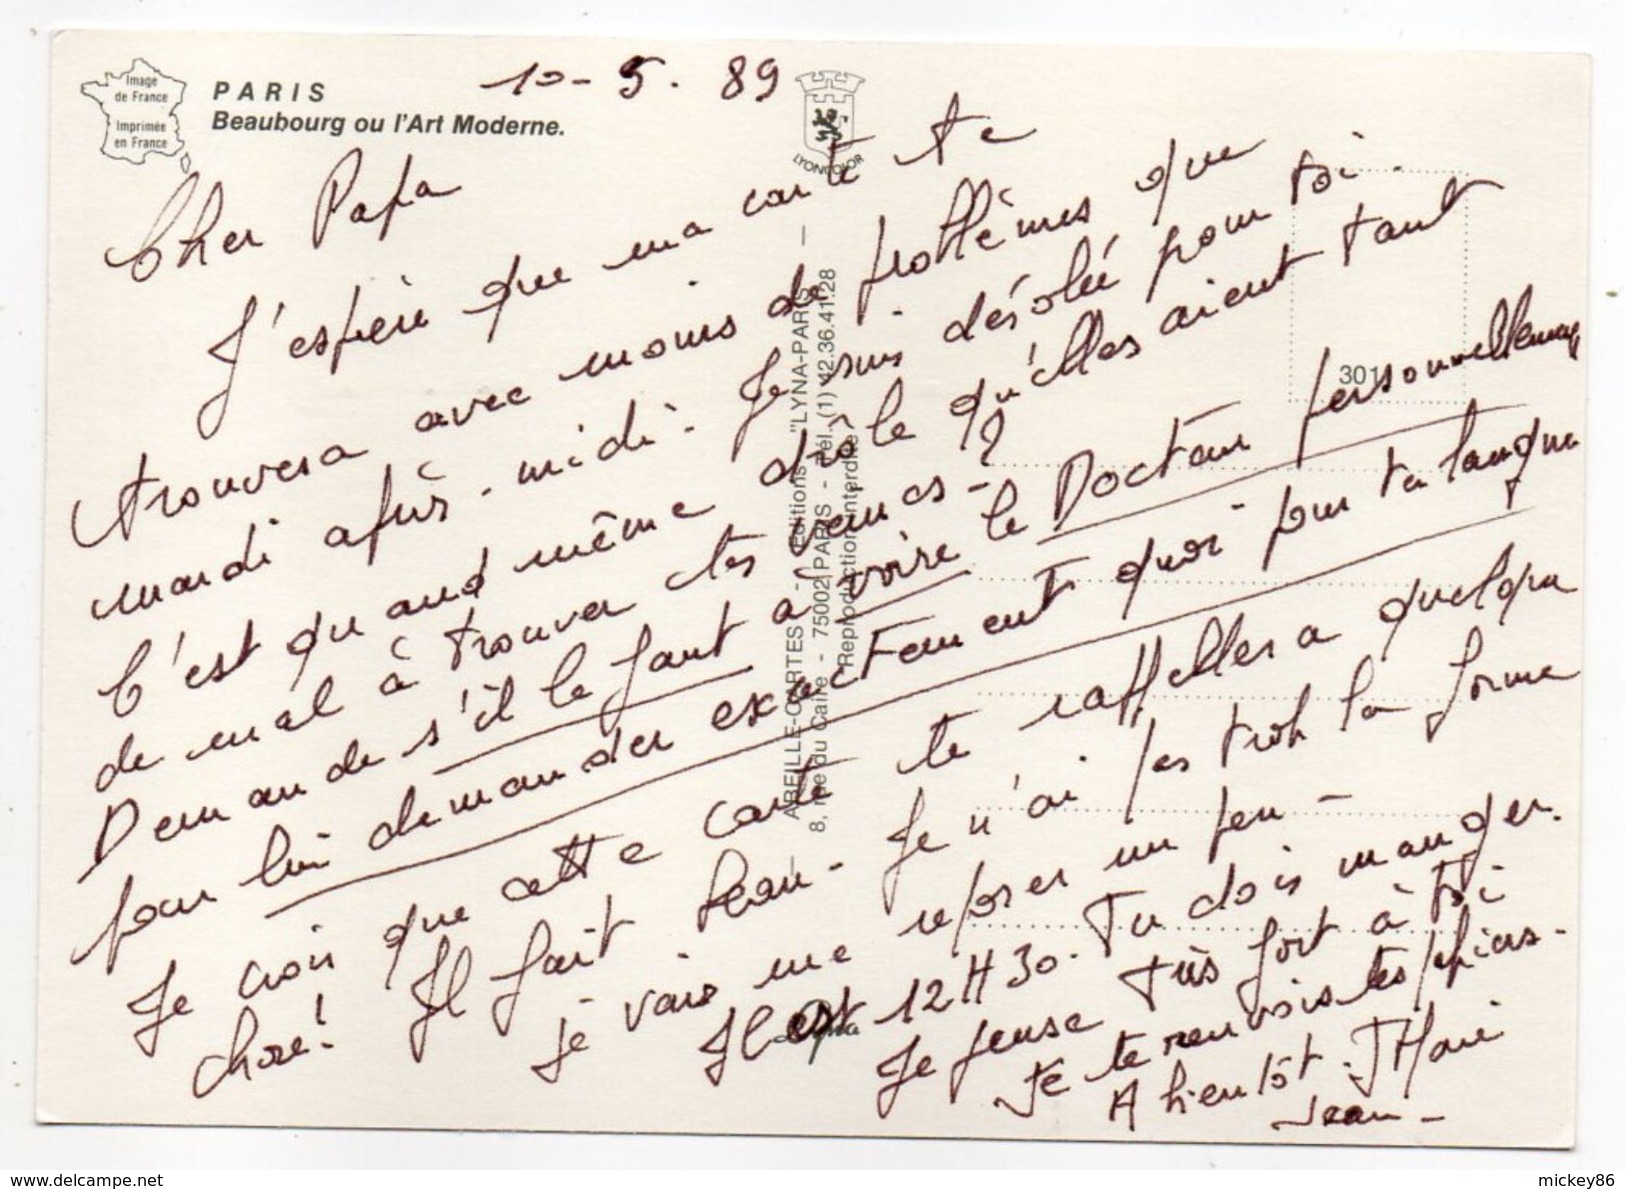 Image
de France
Imprimée
en France
PARIS
Beaubourg ou l'Art Moderne.
10-5. 89
LYONCOLOR
Cher Papa
J'espère que ma carte te
trouvera avec moins de problèmes que
mardi après-midi. Je suis désolée pour toi.
C'est quand même drôle qu'elles aient tant
de mal à trouver tes veines - ?
Demande s'il le faut à voire le Docteur personnellement
pour lui demander exactement quoi pour ta langue
Je crois que cette carte te rappellera quelque
chose! Il fait beau - Je n'ai pas trop la forme
je vais me reposer un peu -
Il est 12H30. Tu dois manger.
Je pense très fort à toi
Je te renvois tes papiers.
A bientôt. JMarie
Jean -
ABEILLE-CARTES - Editions "LYNA-PARIS" -
8, rue du Caire - 75002 PARIS - Tél. (1) 42.36.41.28
Reproduction interdite
301
Lyna
delcampe.net
mickey86